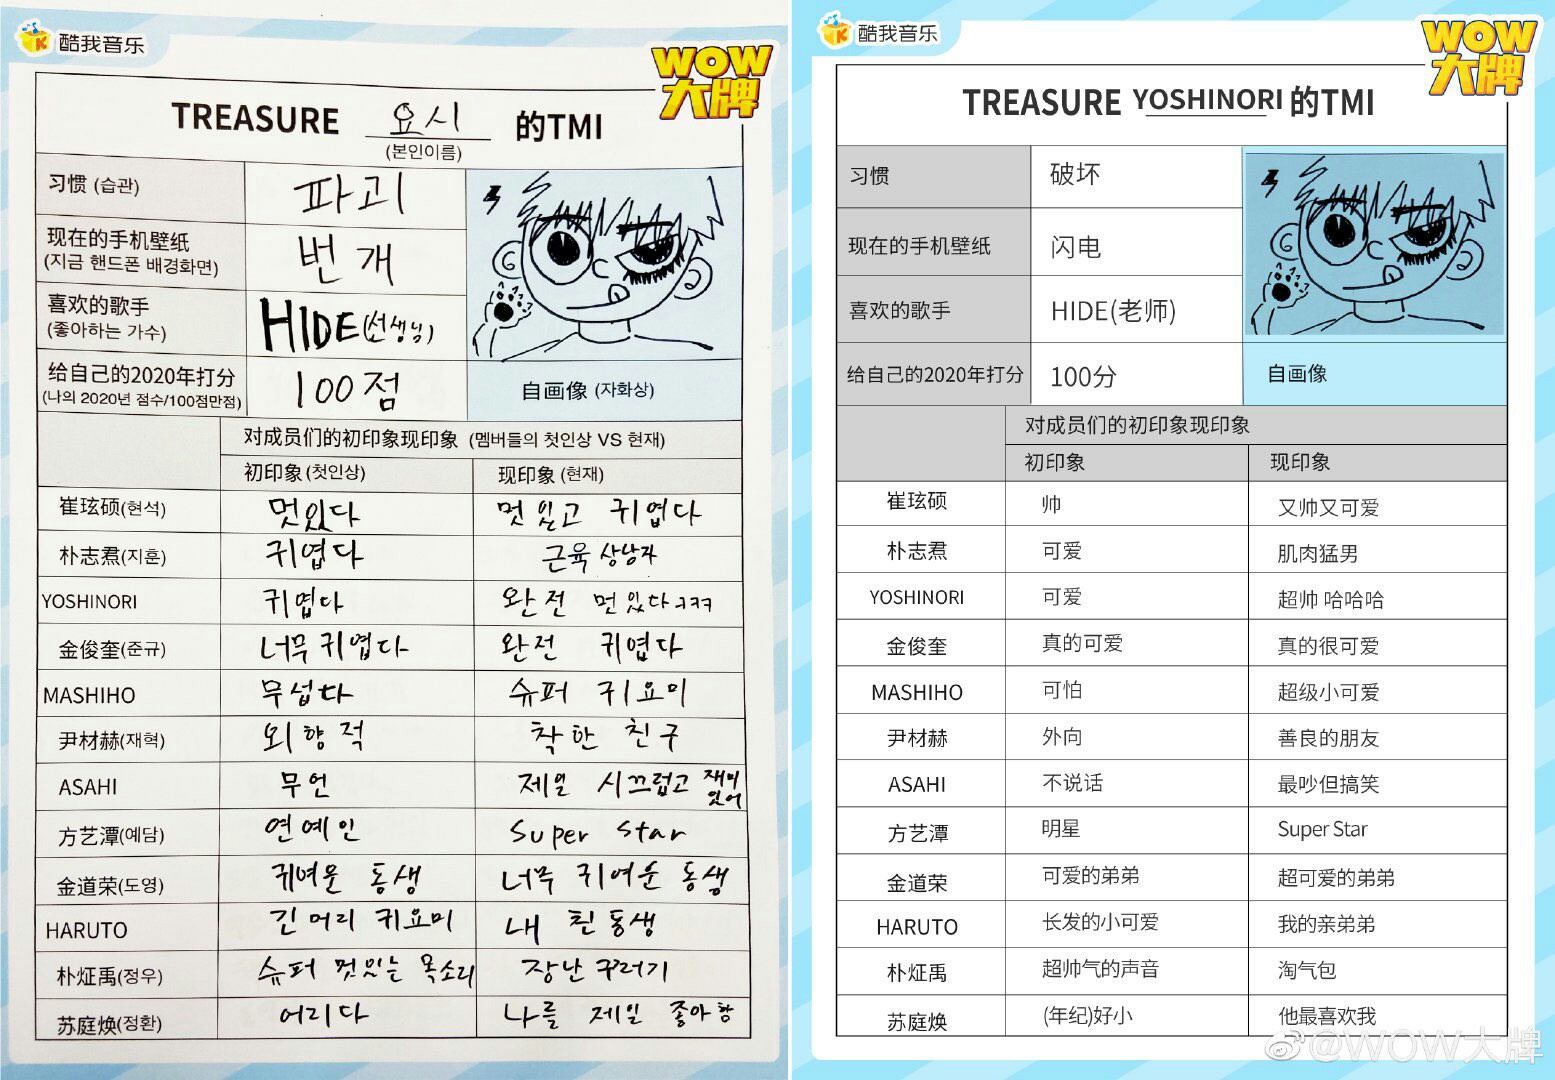 酷我音乐
WOW
大牌
TREASURE 요시 的TMI
(본인이름)
习惯 (습관)
파괴
现在的手机壁纸
(지금 핸드폰 배경화면)
번개
喜欢的歌手
(좋아하는 가수)
HIDE(선생님)
给自己的2020年打分
(나의 2020년 점수/100점만점)
100점
自画像 (자화상)
对成员们的初印象现印象 (멤버들의 첫인상 VS 현재)
初印象 (첫인상) 现印象 (현재)
崔玹硕(현석) 멋있다 멋있고 귀엽다
朴志焄(지훈) 귀엽다 근육 상남자
YOSHINORI 귀엽다 완전 멋있다ㅋㅋㅋ
金俊奎(준규) 너무 귀엽다 완전 귀엽다
MASHIHO 무섭다 슈퍼 귀요미
尹材赫(재혁) 외향적 착한 친구
ASAHI 무언 제일 시끄럽고 재미있어
方艺潭(예담) 연예인 Super Star
金道荣(도영) 귀여운 동생 너무 귀여운 동생
HARUTO 긴 머리 귀요미 내 친동생
朴炡禹(정우) 슈퍼 멋있는 목소리 장난꾸러기
苏庭焕(정환) 어리다 나를 제일 좋아함
酷我音乐
WOW
大牌
TREASURE YOSHINORI 的TMI
习惯 破坏
现在的手机壁纸 闪电
喜欢的歌手 HIDE(老师)
给自己的2020年打分 100分
自画像
对成员们的初印象现印象
初印象 现印象
崔玹硕 帅 又帅又可爱
朴志焄 可爱 肌肉猛男
YOSHINORI 可爱 超帅 哈哈哈
金俊奎 真的可爱 真的很可爱
MASHIHO 可怕 超级小可爱
尹材赫 外向 善良的朋友
ASAHI 不说话 最吵但搞笑
方艺潭 明星 Super Star
金道荣 可爱的弟弟 超可爱的弟弟
HARUTO 长发的小可爱 我的亲弟弟
朴炡禹 超帅气的声音 淘气包
苏庭焕 (年纪)好小 他最喜欢我
@WOW大牌